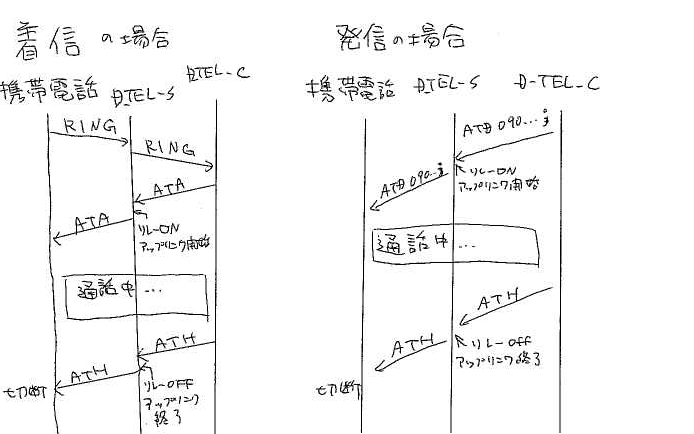 着信の場合
携帯電話
DTEL-S
DTEL-C
RING
RING
ATA
ATA
リレーON
アップリンク開始
通話中...
ATH
ATH
リレーOFF
アップリンク
終了
切断
発信の場合
携帯電話
DTEL-S
D-TEL-C
ATD 090...;
リレーON
アップリンク開始
ATD 090...;
通話中...
ATH
ATH
リレーOFF
アップリンク終了
切断